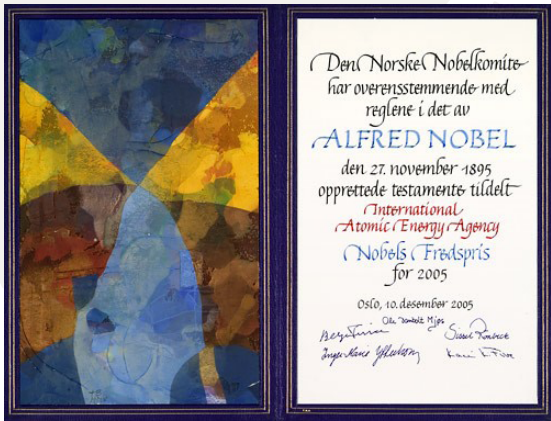 Den Norske Nobelkomite
har overensstemmende med
reglene i det av
ALFRED NOBEL
den 27. november 1895
opprettede testamente tildelt
International
Atomic Energy Agency
Nobels Fredspris
for 2005
Oslo, 10. desember 2005
Ole Danbolt Mjøs
Berge Furre
Inger-Marie Ytterhorn